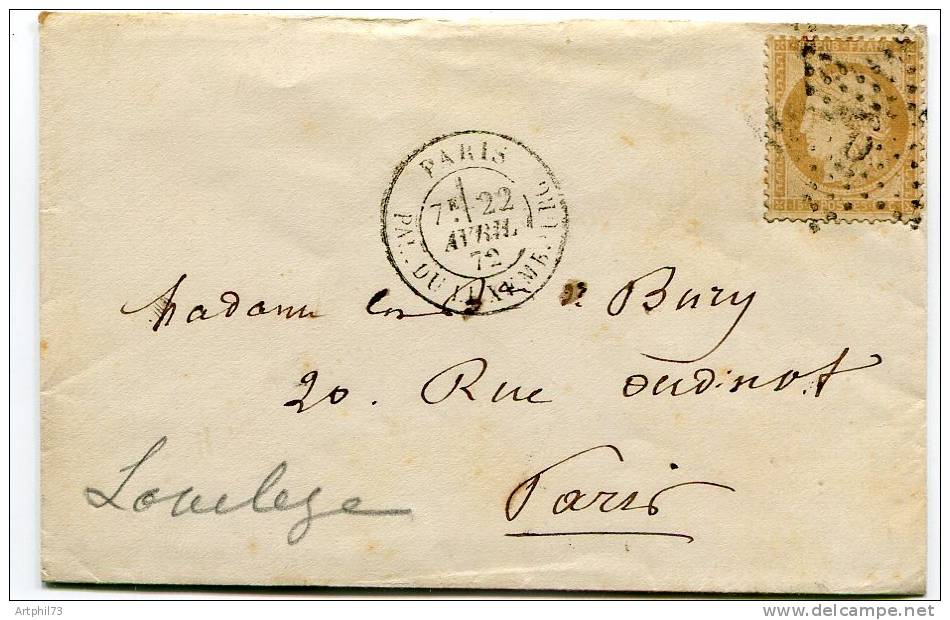 REPUB FRANC
PARIS
7E 22
AVRIL
72
PAL. DU LUXEMBOURG
Madame de Bury
20. Rue Oudinot
Paris
Artphil73
www.delcampe.net